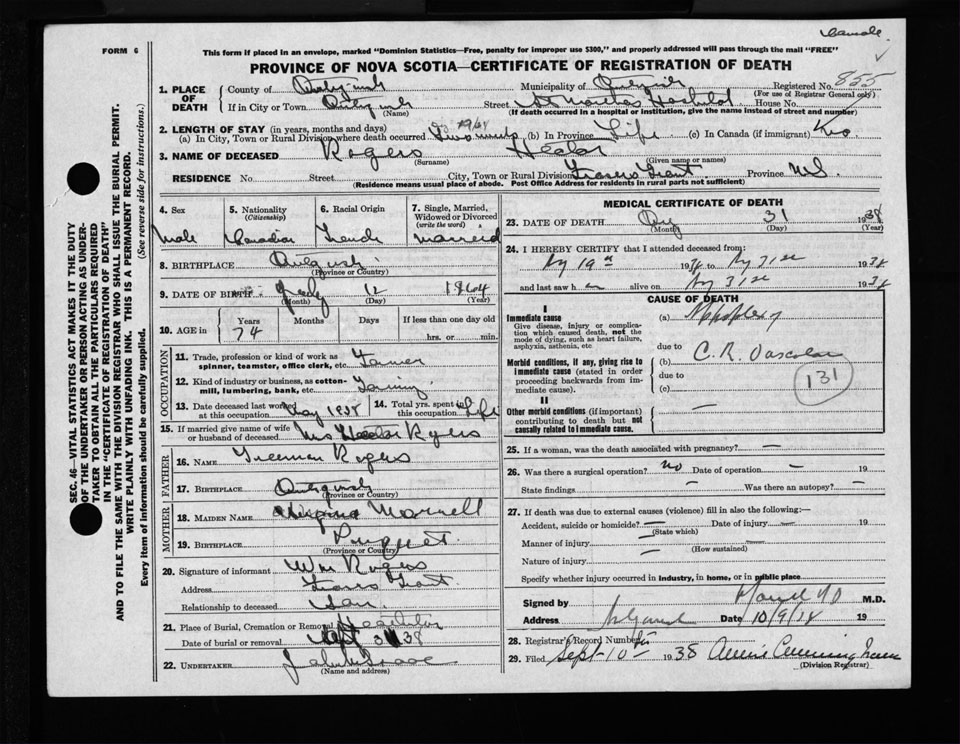 FORM 6
This form if placed in an envelope, marked "Dominion Statistics—Free, penalty for improper use $300," and properly addressed will pass through the mail "FREE"
PROVINCE OF NOVA SCOTIA—CERTIFICATE OF REGISTRATION OF DEATH
SEC. 46—VITAL STATISTICS ACT MAKES IT THE DUTY
OF THE UNDERTAKER OR PERSON ACTING AS UNDER-
TAKER TO OBTAIN ALL THE PARTICULARS REQUIRED
IN THE "CERTIFICATE OF REGISTRATION OF DEATH"
AND TO FILE THE SAME WITH THE DIVISION REGISTRAR WHO SHALL ISSUE THE BURIAL PERMIT.
WRITE PLAINLY WITH UNFADING INK. THIS IS A PERMANENT RECORD.
Every item of information should be carefully supplied. (See reverse side for instructions.)
1. PLACE OF DEATH
County of Municipality of Registered No. 855
(For use of Registrar General only)
If in City or Town Street St Marthas Hospital House No.
(Name) (If death occurred in a hospital or institution, give the name instead of street and number)
2. LENGTH OF STAY (in years, months and days)
(a) In City, Town or Rural Division where death occurred (b) In Province Life (c) In Canada (if immigrant) No
3. NAME OF DECEASED Rogers Hector
(Surname) (Given name or names)
RESIDENCE No. Street City, Town or Rural Division Province N.S.
(Residence means usual place of abode. Post Office Address for residents in rural parts not sufficient)
4. Sex Male
5. Nationality (Citizenship) Canadian
6. Racial Origin French
7. Single, Married, Widowed or Divorced (write the word) Married
8. BIRTHPLACE
(Province or Country)
9. DATE OF BIRTH July 12 1864
(Month) (Day) (Year)
10. AGE in Years 74 Months Days If less than one day old hrs. or min.
OCCUPATION
11. Trade, profession or kind of work as spinner, teamster, office clerk, etc. Farmer
12. Kind of industry or business, as cotton-mill, lumbering, bank, etc. Farming
13. Date deceased last worked at this occupation May 1938
14. Total yrs. spent in this occupation Life
15. If married give name of wife or husband of deceased Mrs Hector Rogers
FATHER
16. NAME Freeman Rogers
17. BIRTHPLACE
(Province or Country)
MOTHER
18. MAIDEN NAME
19. BIRTHPLACE
(Province or Country)
20. Signature of informant Wm Rogers
Address
Relationship to deceased Son
21. Place of Burial, Cremation or Removal
Date of burial or removal Sept 3 38
22. UNDERTAKER
(Name and address)
MEDICAL CERTIFICATE OF DEATH
23. DATE OF DEATH Aug 31 1938
(Month) (Day) (Year)
24. I HEREBY CERTIFY that I attended deceased from:
Aug 19th 1938 to Aug 31st 1938
and last saw h alive on Aug 31st 1938
CAUSE OF DEATH
I
Immediate cause
Give disease, injury or complication which caused death, not the mode of dying, such as heart failure, asphyxia, asthenia, etc.
(a)
due to
Morbid conditions, if any, giving rise to immediate cause (stated in order proceeding backwards from immediate cause).
(b) C. R. Vascular
due to
(c)
131
II
Other morbid conditions (if important) contributing to death but not causally related to immediate cause.
25. If a woman, was the death associated with pregnancy? —
26. Was there a surgical operation? no Date of operation —
State findings — Was there an autopsy? —
27. If death was due to external causes (violence) fill in also the following:—
Accident, suicide or homicide? — Date of injury — 19
(State which)
Manner of injury —
(How sustained)
Nature of injury —
Specify whether injury occurred in industry, in home, or in public place
Signed by M.D.
Address Date 10/9/38 19
28. Registrar's Record Number
29. Filed Sept-10th 1938
(Division Registrar)